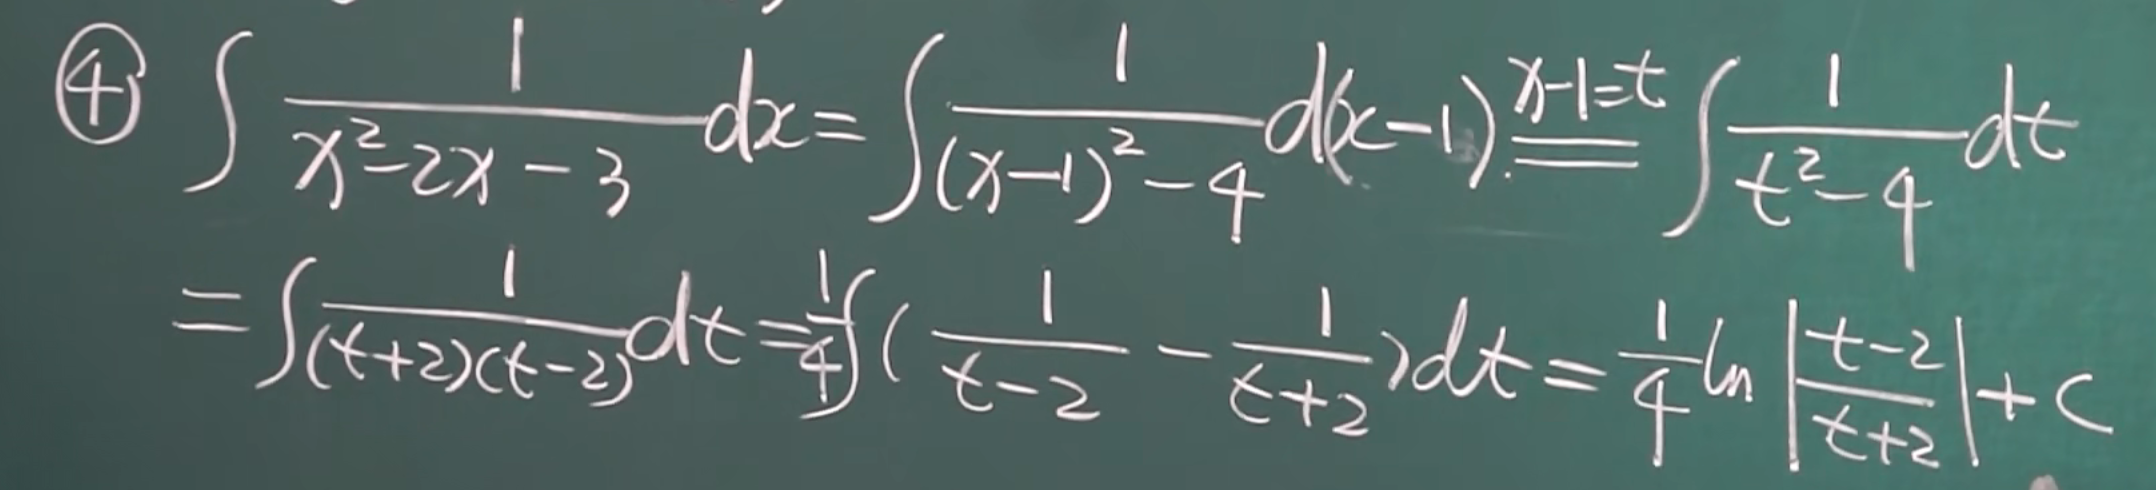 ④ ∫ 1/(x²-2x-3) dx = ∫ 1/((x-1)²-4) d(x-1) x-1=t ∫ 1/(t²-4) dt
= ∫ 1/((t+2)(t-2)) dt = 1/4 ∫ ( 1/(t-2) - 1/(t+2) ) dt = 1/4 ln |(t-2)/(t+2)| + C